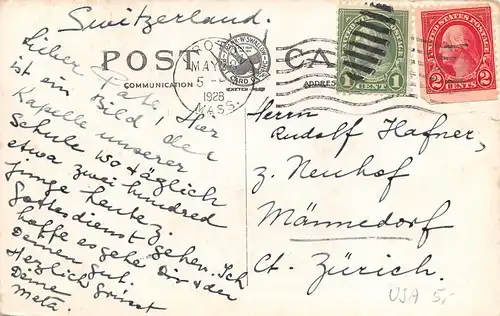 Switzerland.
POST CARD
COMMUNICATION
ADDRESS
MAY
5-
1928
MASS.
UNITED STATES POSTAGE
1 CENT 1
UNITED STATES POSTAGE
2 CENTS 2
Lieber Pate, Hier
ist ein Bild der
Kapelle unserer
Schule wo täglich
etwa zwei hundred
junge heute z.
Gottesdienst gehen. Ich
hoffe es gehe Dir & der
Deinen gut.
Herzlich grüsst
Deine
Meta.
Herrn
Rudolf Hafner,
z. Neuhof
Männedorf
Ct. Zürich.
USA 5,-